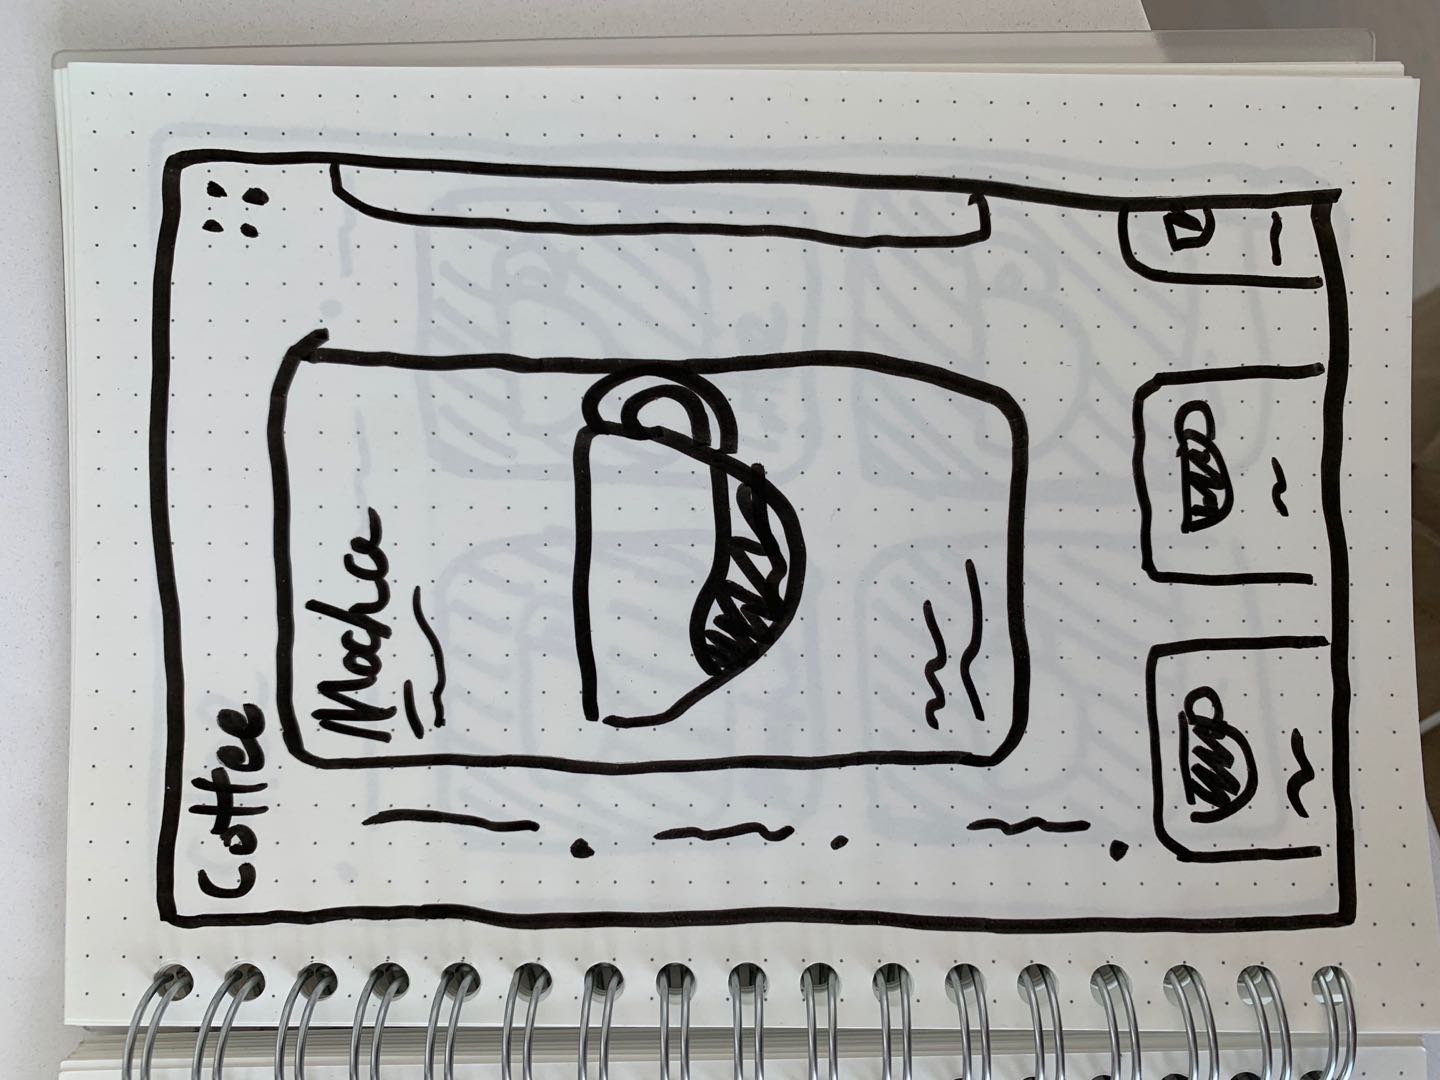 Coffee
Mocha